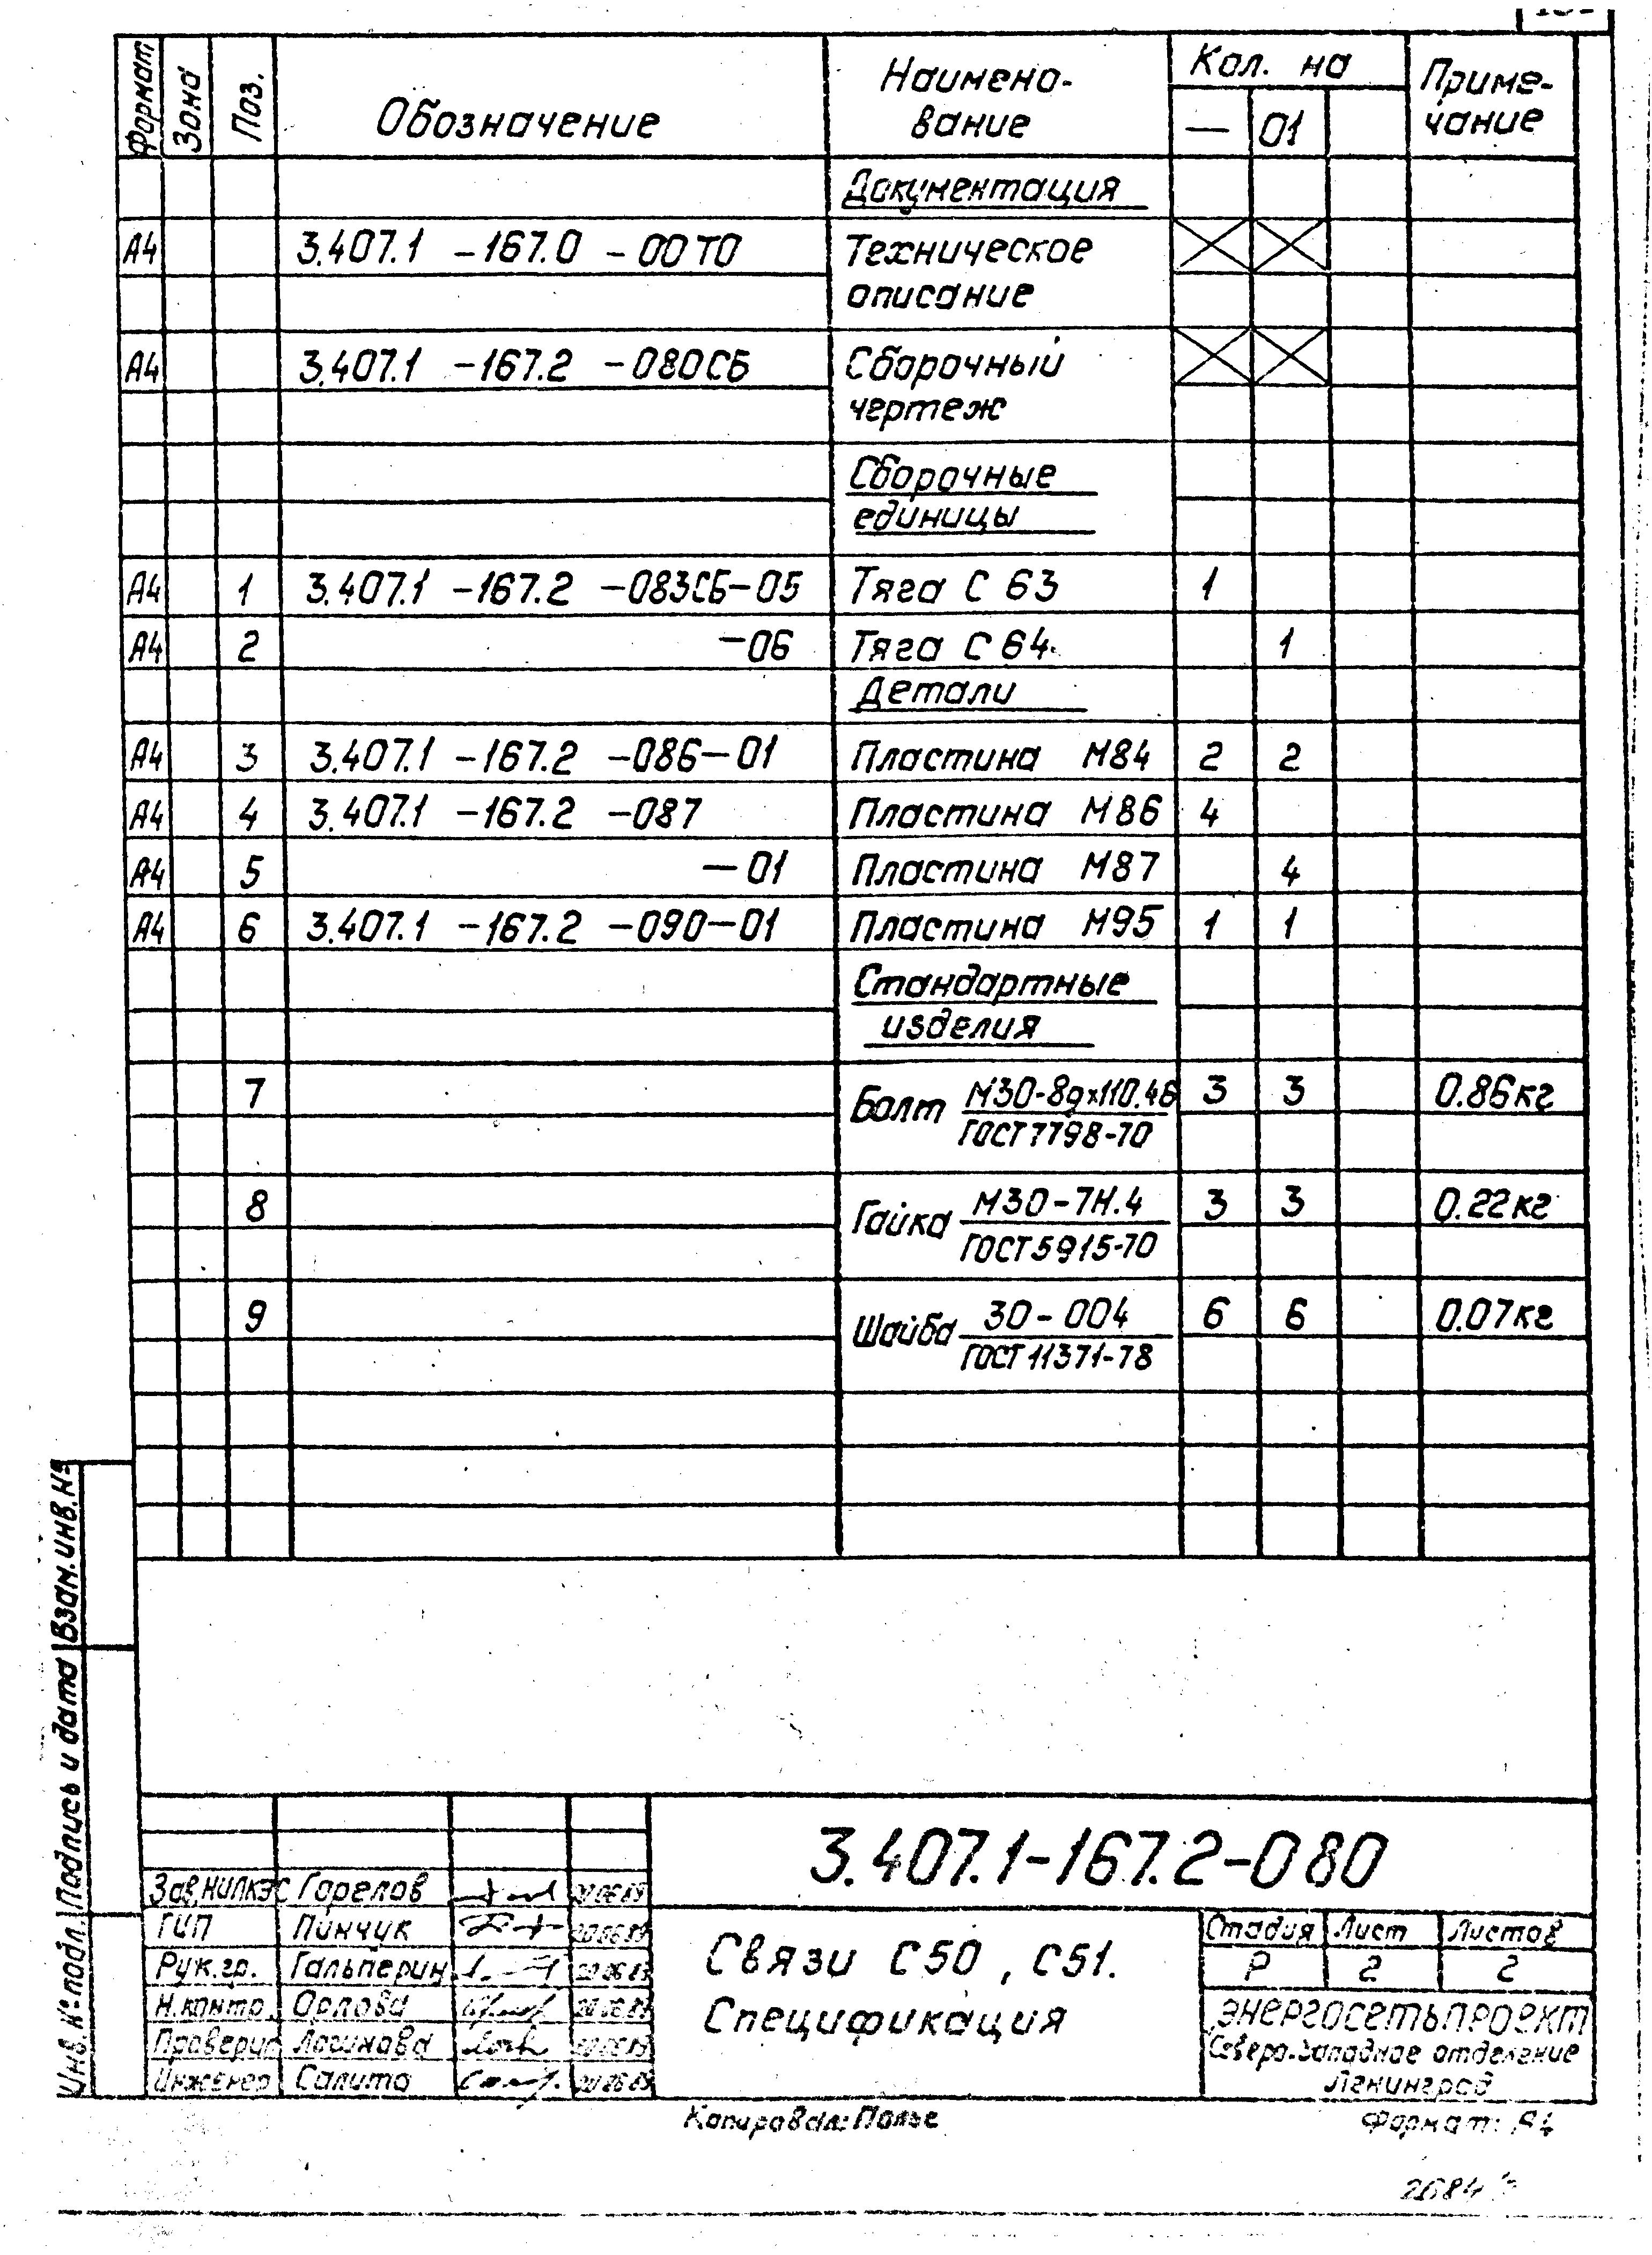 Формат Зона Поз. Обозначение Наимено- Кол. на Приме-
вание — 01 чание
Документация
А4 3.407.1 -167.0 -00ТО Техническое
описание
А4 3.407.1 -167.2 -080СБ Сборочный
чертеж
Сборочные
единицы
А4 1 3.407.1 -167.2 -083СБ-05 Тяга С 63 1
А4 2 -06 Тяга С 64 1
Детали
А4 3 3.407.1 -167.2 -086-01 Пластина М84 2 2
А4 4 3.407.1 -167.2 -087 Пластина М86 4
А4 5 -01 Пластина М87 4
А4 6 3.407.1 -167.2 -090-01 Пластина М95 1 1
Стандартные
изделия
7 Болт М30-8gх110.46 3 3 0.86кг
ГОСТ 7798-70
8 Гайка М30-7Н.4 3 3 0.22кг
ГОСТ 5915-70
9 Шайба 30-004 6 6 0.07кг
ГОСТ 11371-78
Взам.инв.№
Подпись и дата
Инв.№ подл.
3.407.1-167.2-080
Зав.НИЛКЭС Горелов 20.06.89
ГИП Пинчук 20.06.89
Рук.гр. Гальперин 20.06.89
Н.контр. Орлова 20.06.89
Проверил Лосинова 20.06.89
Инженер Салита 20.06.89
Связи С50, С51.
Спецификация
Стадия Лист Листов
Р 2 2
ЭНЕРГОСЕТЬПРОЕКТ
Северо-Западное отделение
Ленинград
Копировал: Полье Формат: А4